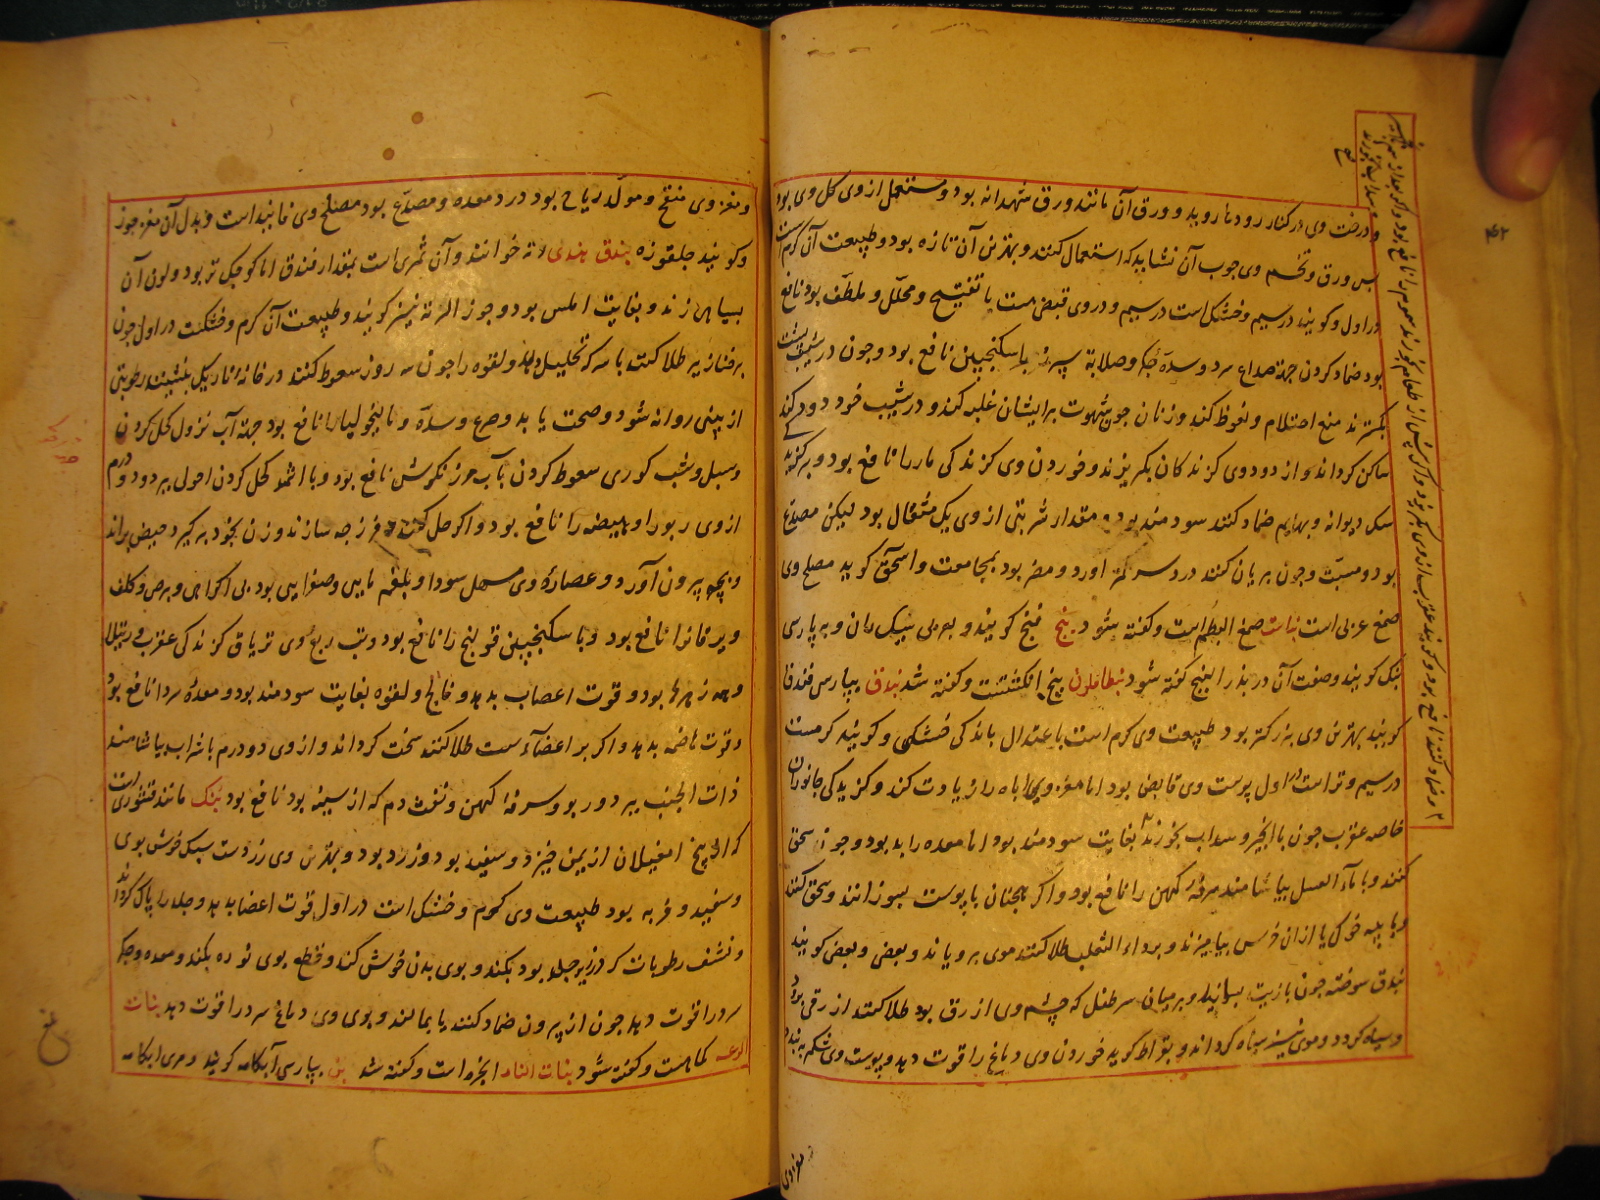 و درخت وی در کنار رودها روید و ورق آن مانند ورق شهدانه بود و مستعمل از وی کل وی بود
بس ورق و تخم وی جوب آن نشاید که استعمال کنند و بهترین آن تازه بود و طبیعت آن کرم است
در اول و کویند در سیم و خشک است در سیم و در وی قبض هست با تفتیح و محلل و ملطف بود نافع
بود ضماد کردن جهة صداع سرد و سده جکر و صلابة سپرز با سکنجبین نافع بود و جون در شیب پشت
بکسترند منع احتلام و نعوظ کند و زنان جون شهوت بر ایشان غلبه کند و در شیب خود دود کند
ساکن کرداند و از دود وی کزندکان بکریزند و خوردن وی کزندکی مار را نافع بود و بر کزیدکی
سک دیوانه و بهایم ضماد کنند سودمند بود و مقدار شربتی از وی یک مثقال بود لیکن مصدع
بود و مسبت و جون بریان کنند درد سر کمتر آورد و مضر بود بمجامعت و اسحق کوید مصلح وی
صمغ عربی است بنات صمغ البطم است و کفته شود بنج فنج کویند و بعربی سیکران و بپارسی
بنک کویند وصفت آن در بذر البنج کفته شود بنطافلون پنج انکشتست و کفته شد بندق بپارسی فندق
کویند بهترین وی بزرکتر بود طبیعت وی کرم است باعتدال باندکی خشکی و کویند کرمست
در سیم و تر است در اول پوست وی قابض بود اما مغز وی باه را زیادت کند و کزیدکی جانوران
خاصه عقرب جون با انجیر و سداب بخورند بغایت سودمند بود اما معده را بد بود و جون سحق
کنند و با ماء العسل بیاشامند سرفه کهن را نافع بود و اکر همجنان با پوست بسوزانند و سحق کنند
و با پیه خوک یا از آن خرس بیامیزند و بر داء الثعلب طلا کنند موی برویاند و بعض کویند
بندق سوخته جون با زیت بسایند و بر میان سر طفل که چشم وی ازرق بود طلا کنند ازرقی برود
و سیاه کردد و موی نیز سیاه کرداند و بقراط کوید خوردن وی دماغ را قوت دهد و پوست وی شکم ببندد
و مغز وی منفخ و مولد ریاح بود در درد معده و مصدع بود مصلح وی فانید است و بدل آن مغز جوز
و کویند جلغوزه بندق هندی رته خوانند و آن ثمری است بمقدار فندق اما کوچک تر بود و لون آن
بسیاهی زند و بغایت املس بود و جوز الرته نیز کویند و طبیعت آن کرم و خشکست در اول جون
بر خنازیر طلا کنند با سرکه تحلیل دهد و لقوه را جون سه روز سعوط کنند در خانه تاریک بنشینند رطوبتی
از بینی روانه شود و صحت یابد و صرع و سده و مالیخولیا را نافع بود جهة آب نزول کحل کردن
و سبل و شب کوری سعوط کردن با آب مرزنکوش نافع بود و با اثمد کحل کردن احولی ببرد و دو درم
از وی ربو را و هیضه را نافع بود و اکر حل کنند و فرزجه سازند و زن بخود برکیرد حیض براند
و بچه بیرون آورد و عصاره وی مسهل سودا و بلغم مایی و صفرایی بود بی اکراهی و برص و کلف
و یرقان را نافع بود و با سکنجبین قولنج را نافع بود و تب ربع وی تریاق کزندکی عقرب و رتیلا
و همه زهرها بود و قوت اعصاب بدهد و فالج و لقوه بغایت سودمند بود و معده سرد را نافع بود
و قوت هاضمه بدهد و اکر بر اعضاء سست طلا کنند سخت کرداند و از وی دو درم با شراب بیاشامند
ذات الجنب ببرد و ربو و سرفه کهن و نفث دم که از سینه بود نافع بود بنک مانند قشوری است
که از بیخ امغیلان از یمن خیزد و سفید بود و زرد بود و بهترین وی زردست سبک خوش بوی
و سفید و فربه بود طبیعت وی کرم و خشک است در اول قوت اعضا بدهد و جلد را پاک کرداند
و نشف رطوبات که در زیر جلد بود بکند و بوی بدن خوش کند و قطع بوی نوره بکند و معده و جکر
سرد را قوت دهد جون از بیرون ضماد کنند یا بمالند و بوی وی دماغ سرد را قوت دهد بنات
الرعد کماهست و کفته شود بنات النار انجره است و کفته شد بن بپارسی آبکامه کویند و مری ابکامه